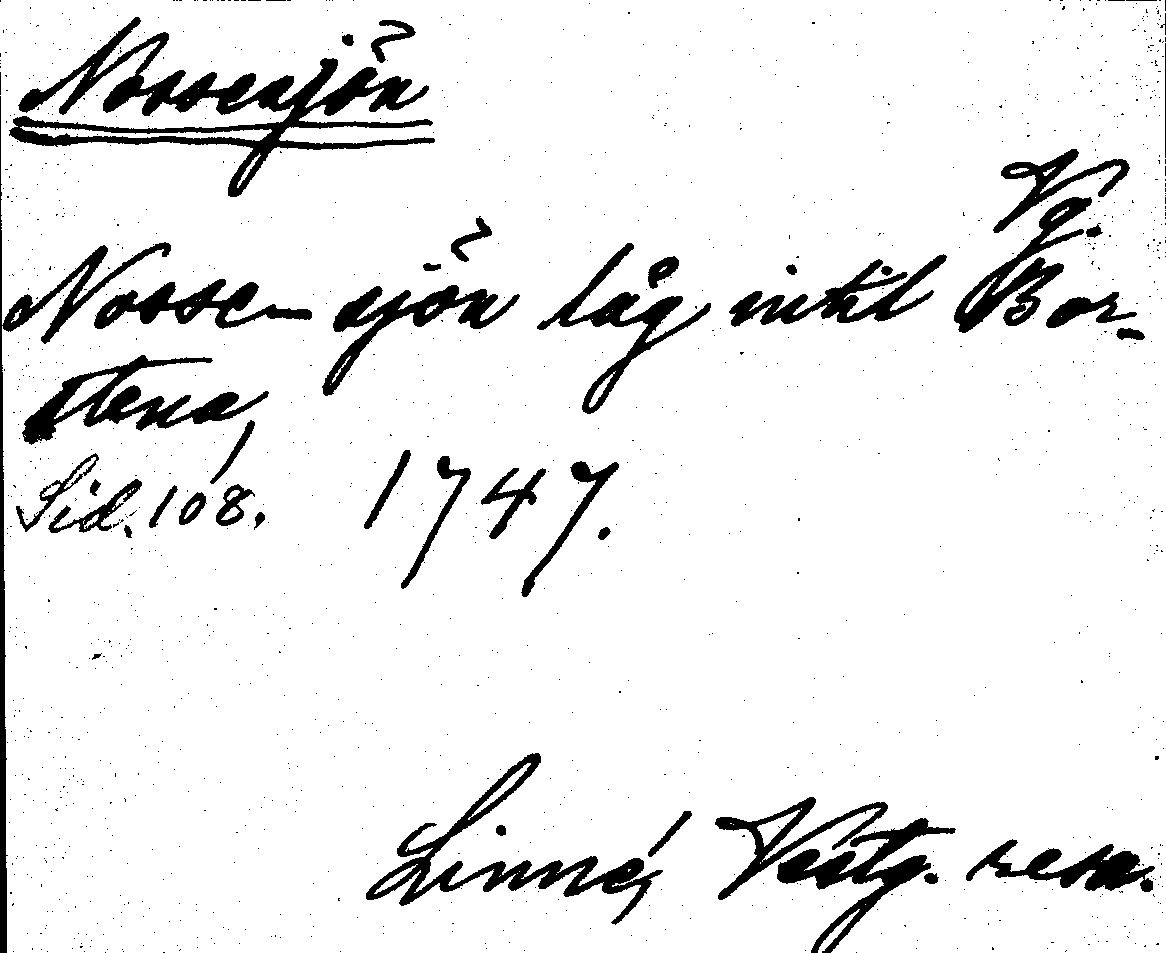 Nossensjön
Vg.
Nossen-sjön låg intil Bor-
stena,
Sid. 108. 1747.
Linné, Vestg. resa.